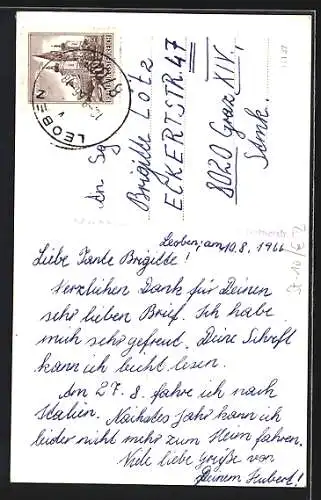 LEOBEN
An Sg
Brigitte Lotz
ECKERTSTR. 47
8020 Graz XIV,
Stmk.
Leoben, am 10.8.1966
Liebe Tante Brigitte!
Herzlichen Dank für Deinen
sehr lieben Brief. Ich habe
mich sehr gefreut. Deine Schrift
kann ich leicht lesen.
Am 27.8. fahre ich nach
Italien. Nächstes Jahr kann ich
leider nicht mehr zum Heim fahren.
Viele liebe Grüße von
Deinem Hubert!